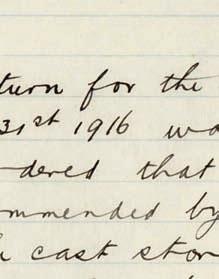 turn for the
31st 1916 wa
dered that
ommended by
h cast ston